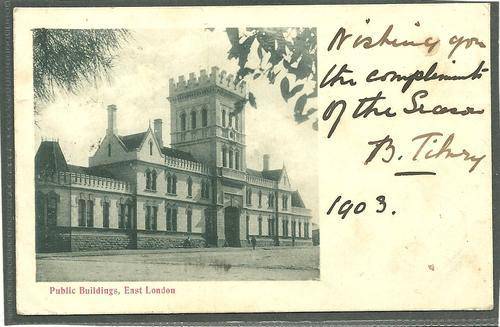 Wishing you
the compliments
of the Season
B. Tilney
1903.
Public Buildings, East London